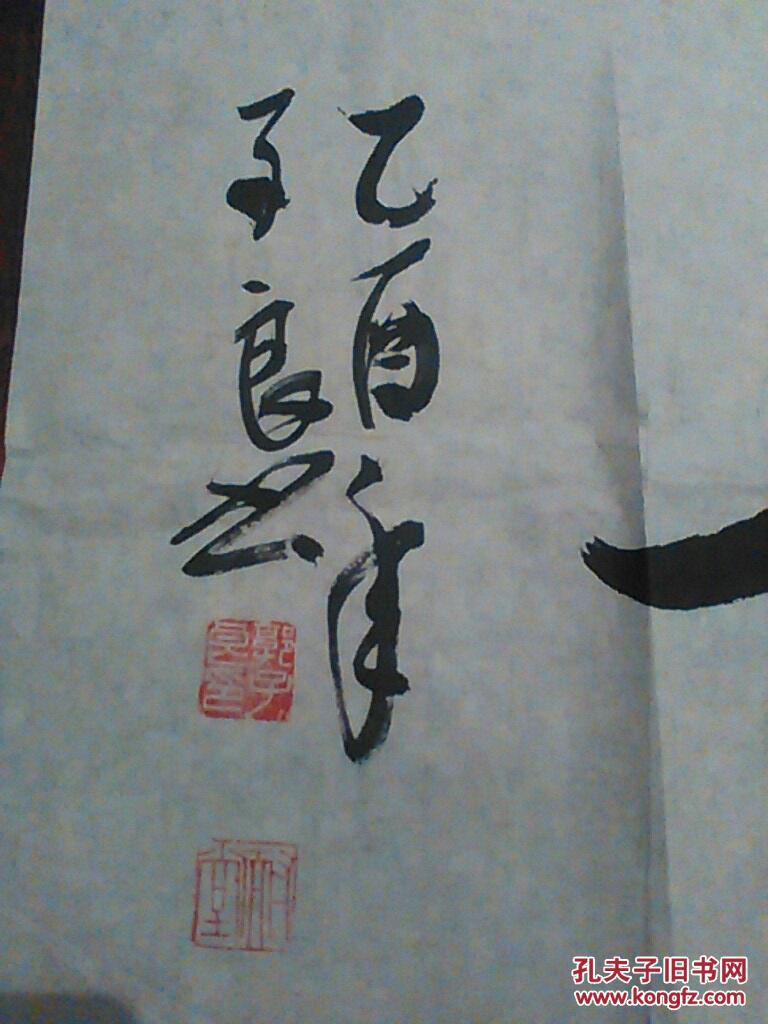 乙酉年
子良书
郭子良印
孔夫子旧书网
www.kongfz.com